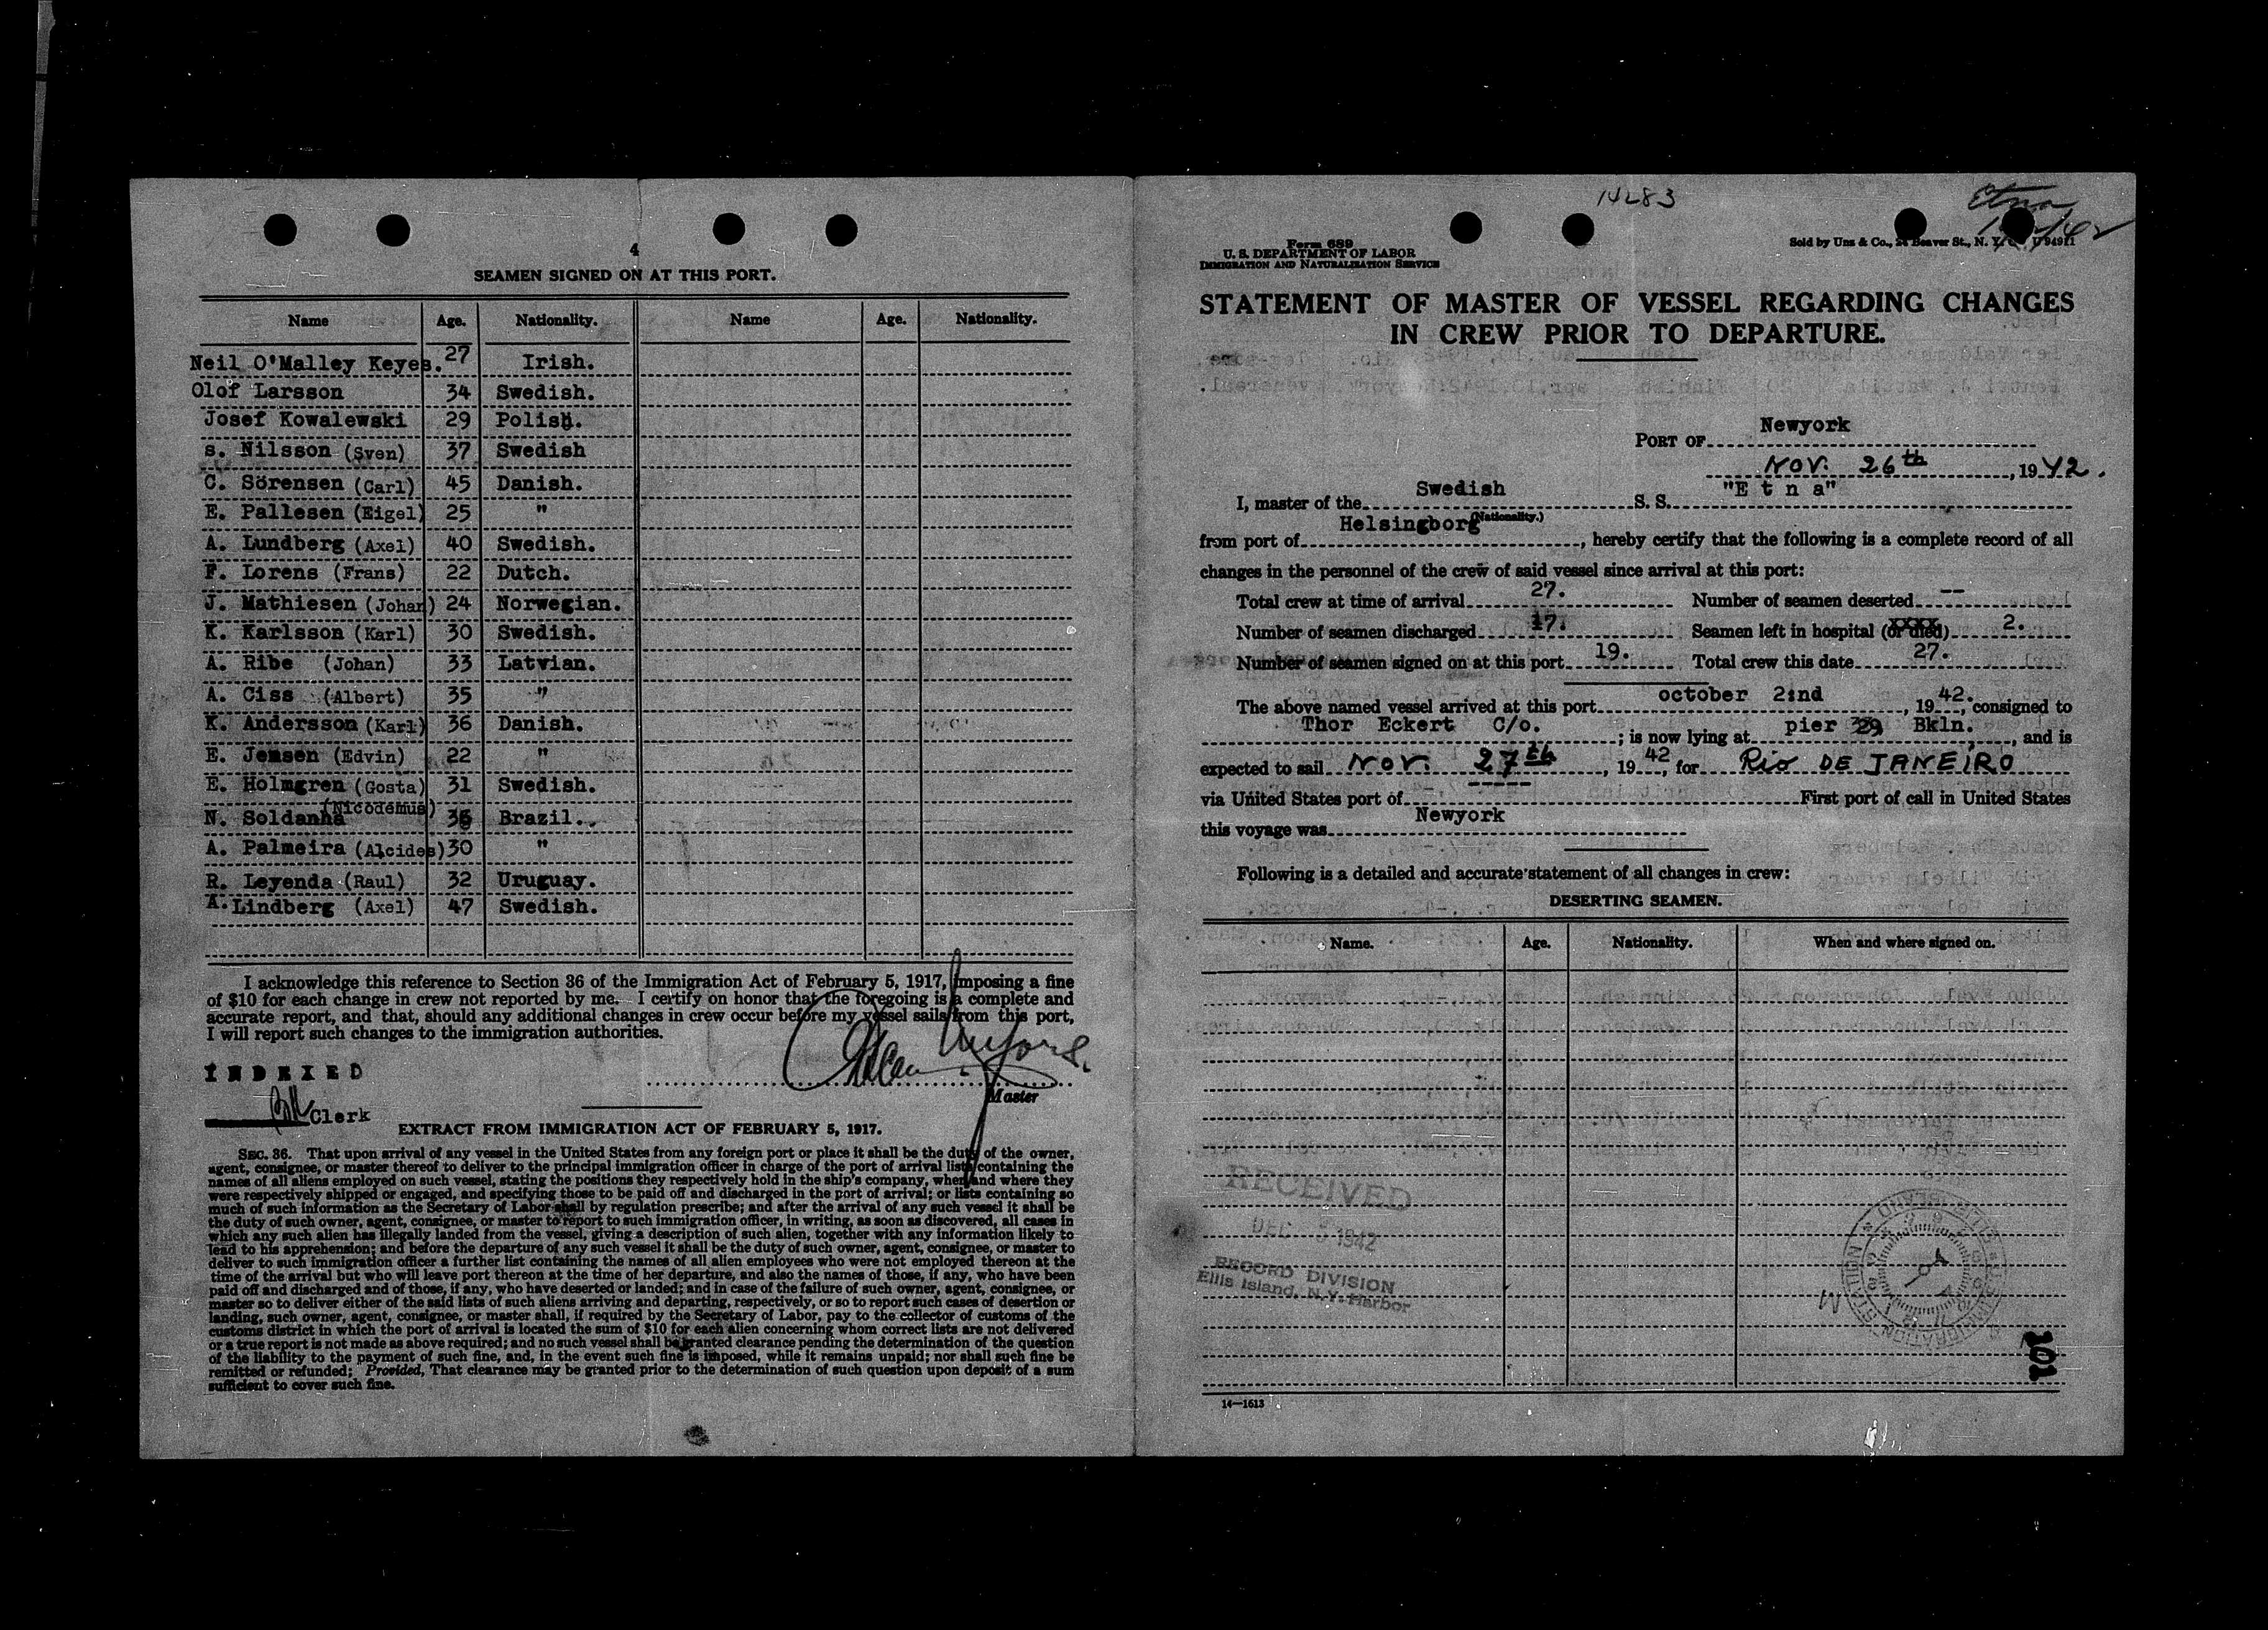 4
SEAMEN SIGNED ON AT THIS PORT.
Name Age. Nationality. Name Age. Nationality.
Neil O'Malley Keyes. 27 Irish.
Olof Larsson 34 Swedish.
Josef Kowalewski 29 Polish.
s. Nilsson (Sven) 37 Swedish
C. Sörensen (Carl) 45 Danish.
E. Pallesen (Eigel) 25 "
A. Lundberg (Axel) 40 Swedish.
F. Lorens (Frans) 22 Dutch.
J. Mathiesen (Johan) 24 Norwegian.
K. Karlsson (Karl) 30 Swedish.
A. Ribe (Johan) 33 Latvian.
A. Ciss (Albert) 35 "
K. Andersson (Karl) 36 Danish.
E. Jensen (Edvin) 22 "
E. Holmgren (Gosta) 31 Swedish.
(Nicodemus)
N. Soldanha 36 Brazil.
A. Palmeira (Alcides) 30 "
R. Leyenda (Raul) 32 Uruguay.
A. Lindberg (Axel) 47 Swedish.
I acknowledge this reference to Section 36 of the Immigration Act of February 5, 1917, imposing a fine
of $10 for each change in crew not reported by me. I certify on honor that the foregoing is a complete and
accurate report, and that, should any additional changes in crew occur before my vessel sails from this port,
I will report such changes to the immigration authorities.
INDEXED
Clerk
Master
EXTRACT FROM IMMIGRATION ACT OF FEBRUARY 5, 1917.
SEC. 36. That upon arrival of any vessel in the United States from any foreign port or place it shall be the duty of the owner,
agent, consignee, or master thereof to deliver to the principal immigration officer in charge of the port of arrival lists containing the
names of all aliens employed on such vessel, stating the positions they respectively hold in the ship's company, when and where they
were respectively shipped or engaged, and specifying those to be paid off and discharged in the port of arrival; or lists containing so
much of such information as the Secretary of Labor shall by regulation prescribe; and after the arrival of any such vessel it shall be
the duty of such owner, agent, consignee, or master to report to such immigration officer, in writing, as soon as discovered, all cases in
which any such alien has illegally landed from the vessel, giving a description of such alien, together with any information likely to
lead to his apprehension; and before the departure of any such vessel it shall be the duty of such owner, agent, consignee, or master to
deliver to such immigration officer a further list containing the names of all alien employees who were not employed thereon at the
time of the arrival but who will leave port thereon at the time of her departure, and also the names of those, if any, who have been
paid off and discharged and of those, if any, who have deserted or landed; and in case of the failure of such owner, agent, consignee, or
master so to deliver either of the said lists of such aliens arriving and departing, respectively, or so to report such cases of desertion or
landing, such owner, agent, consignee, or master shall, if required by the Secretary of Labor, pay to the collector of customs of the
customs district in which the port of arrival is located the sum of $10 for each alien concerning whom correct lists are not delivered
or a true report is not made as above required; and no such vessel shall be granted clearance pending the determination of the question
of the liability to the payment of such fine, and, in the event such fine is imposed, while it remains unpaid; nor shall such fine be
remitted or refunded; Provided, That clearance may be granted prior to the determination of such question upon deposit of a sum
sufficient to cover such fine.
14283
Etna
Form 689
U. S. DEPARTMENT OF LABOR
IMMIGRATION AND NATURALIZATION SERVICE
Sold by Unz & Co., 24 Beaver St., N. Y. U 94911
STATEMENT OF MASTER OF VESSEL REGARDING CHANGES
IN CREW PRIOR TO DEPARTURE.
PORT OF Newyork
Nov. 26th, 1942.
I, master of the Swedish S. S. "E t n a"
(Nationality.)
from port of Helsingborg, hereby certify that the following is a complete record of all
changes in the personnel of the crew of said vessel since arrival at this port:
Total crew at time of arrival 27. Number of seamen deserted --
Number of seamen discharged 17. Seamen left in hospital (or died) 2.
Number of seamen signed on at this port 19. Total crew this date 27.
The above named vessel arrived at this port october 2:nd, 1942., consigned to
Thor Eckert C/o. ; is now lying at pier 29 Bkln., and is
expected to sail Nov. 27th, 1942, for Rio DE JANEIRO
via United States port of First port of call in United States
this voyage was Newyork
Following is a detailed and accurate statement of all changes in crew:
DESERTING SEAMEN.
Name. Age. Nationality. When and where signed on.
RECEIVED
DEC 5 1942
RECORD DIVISION
Ellis Island, N.Y. Harbor
101
14—1613